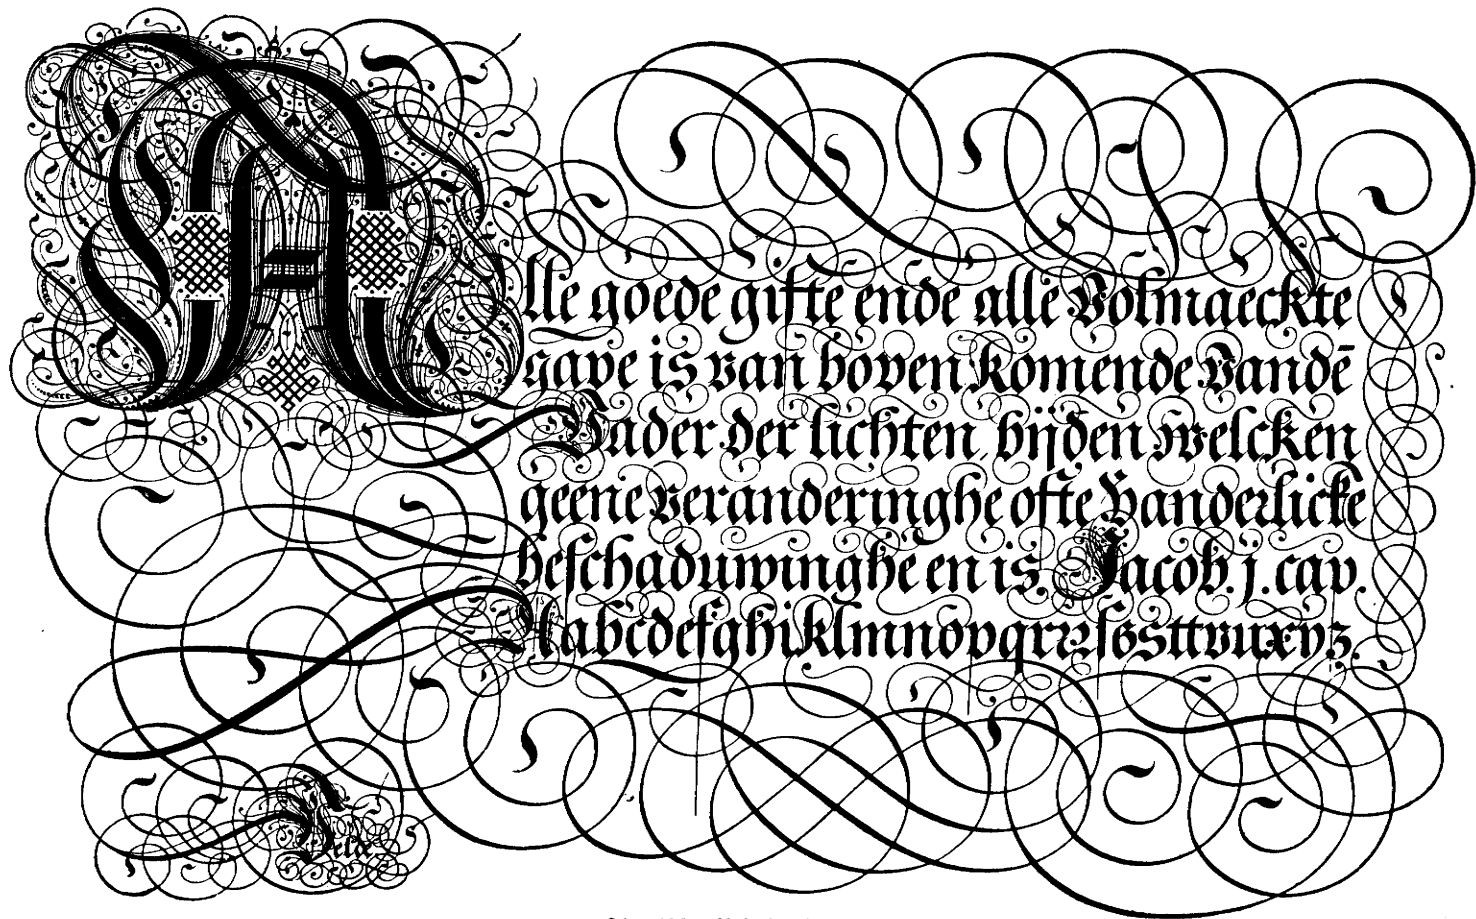 Alle goede gifte ende alle Volmaeckte
gave is van boven komende Vandē
Vader der lichten, bijden welcken
geene veranderinghe ofte Vanderlicke
beschaduwinghe en is. Jacob. j. cap.
Aabcdefghiklmnopqrrzſssttvuxyz.
Velde